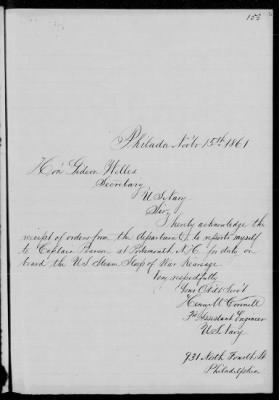 Philada Nov 15th 1861
Hon Gideon Welles
Secretary
U S Navy
Sir,
I hereby acknowledge the
receipt of orders from the department to report myself
to Captain Pearson at Portsmouth, N.H. for duty on
board the U.S. Steam Sloop of War Kearsage
Very respectfully
Your Obdt Servt
Henry M Connell
3rd Assistant Engineer
U S Navy
931 North Fourth St
Philadelphia